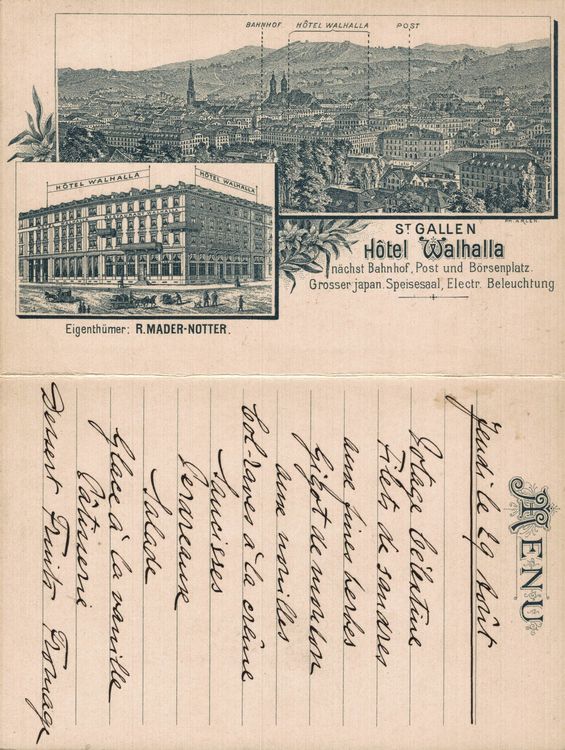 BAHNHOF HÔTEL WALHALLA POST
HÔTEL WALHALLA
HÔTEL WALHALLA
RESTAURANT WALHALLA
PH. ARLEN
ST GALLEN
Hôtel Walhalla
nächst Bahnhof, Post und Börsenplatz.
Grosser japan. Speisesaal, Electr. Beleuchtung
Eigenthümer: R. MADER-NOTTER.
MENU
Jeudi le 29 Août
Potage Célestine
Filets de sandres
aux fines herbes
Gigot de mouton
aux nouilles
Col-raves à la crême
Saucisses
Perdreaux
Salade
Glace à la vanille
Pâtisserie
Dessert Fruits Fromage